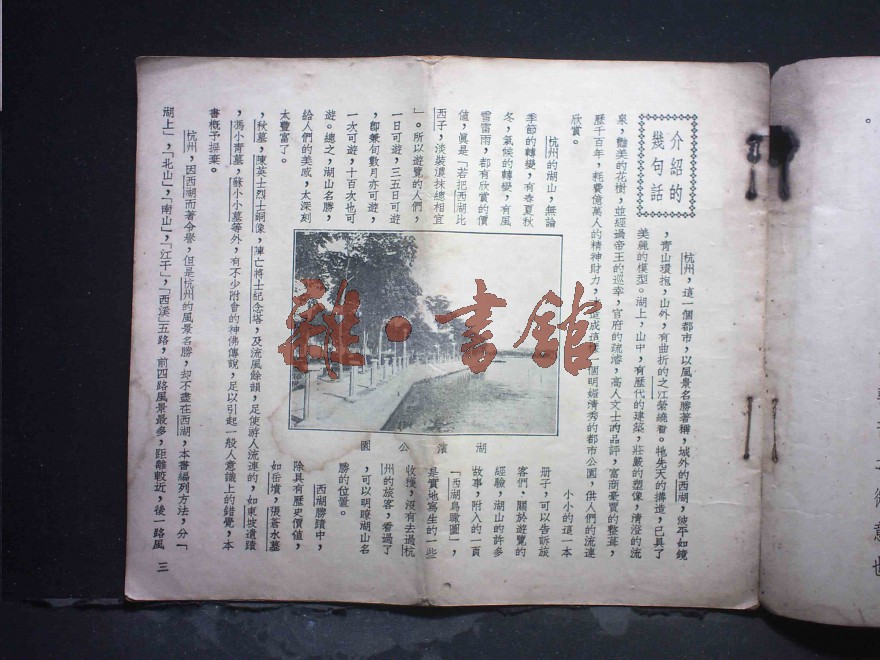 介紹的
幾句話
杭州，這一個都市，以風景名勝著稱，城外的西湖，波平如鏡
，青山環抱，山外，有曲折的之江縈繞着。牠先天的搆造，已具了
美麗的模型。湖上，山中，有歷代的建築，莊嚴的塑像，清澄的流
泉，豔美的花樹，並經過帝王的巡幸，官府的疏濬，高人文士的品評，富商豪賈的整葺，
歷千百年，耗費億萬人的精神財力，造成這樣一個明媚清秀的都市公園，供人們的流連
欣賞。
杭州的湖山，無論
季節的轉變，有春夏秋
冬，氣候的轉變，有風
雪雷雨，都有欣賞的價
値，眞是「若把西湖比
西子，淡裝濃抹總相宜
」。所以遊覽的人們，
一日可遊，三五日可遊
，卽兼旬數月亦可遊，
一次可遊，十百次也可
遊。總之，湖山名勝，
給人們的美感，太深刻
太豐富了。
湖濱公園
小小的這一本
册子，可以告訴旅
客們，關於遊覽的
經驗，湖山的許多
故事，附入的一頁
「西湖鳥瞰圖」，
是實地寫生的一些
收獲，沒有去過杭
州的旅客，看過了
，可以明瞭湖山名
勝的位置。
西湖勝蹟中，
除具有歷史價値，
如岳墳，張蒼水墓
，秋墓，陳英士烈士銅像，陣亡將士紀念塔，及流風餘韻，足使游人流連的，如東坡遺蹟
，馮小青墓，蘇小小墓等外，有不少附會的神佛傳說，足以引起一般人意識上的錯覺，本
書槪予摒棄。
杭州，因西湖而著令譽，但是杭州的風景名勝，却不盡在西湖，本書編列方法，分「
湖上」，「北山」，「南山」，「江干」，「西溪」五路，前四路風景最多，距離較近，後一路風
三
雅·書館